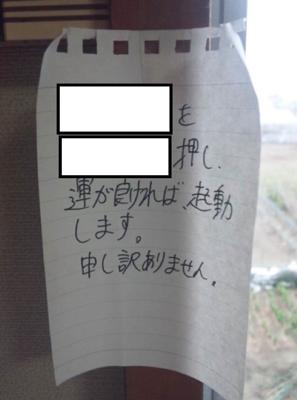 を
押し、
運が良ければ、起動
します。
申し訳ありません。